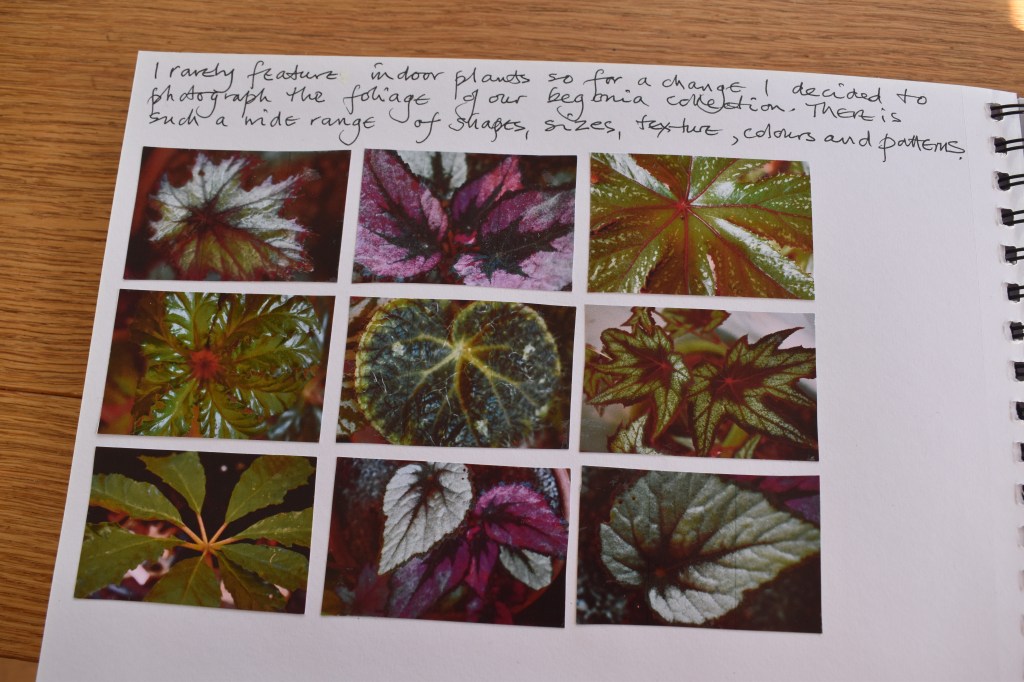 I rarely feature indoor plants so for a change I decided to
photograph the foliage of our begonia collection. There is
such a wide range of shapes, sizes, texture, colours and patterns.